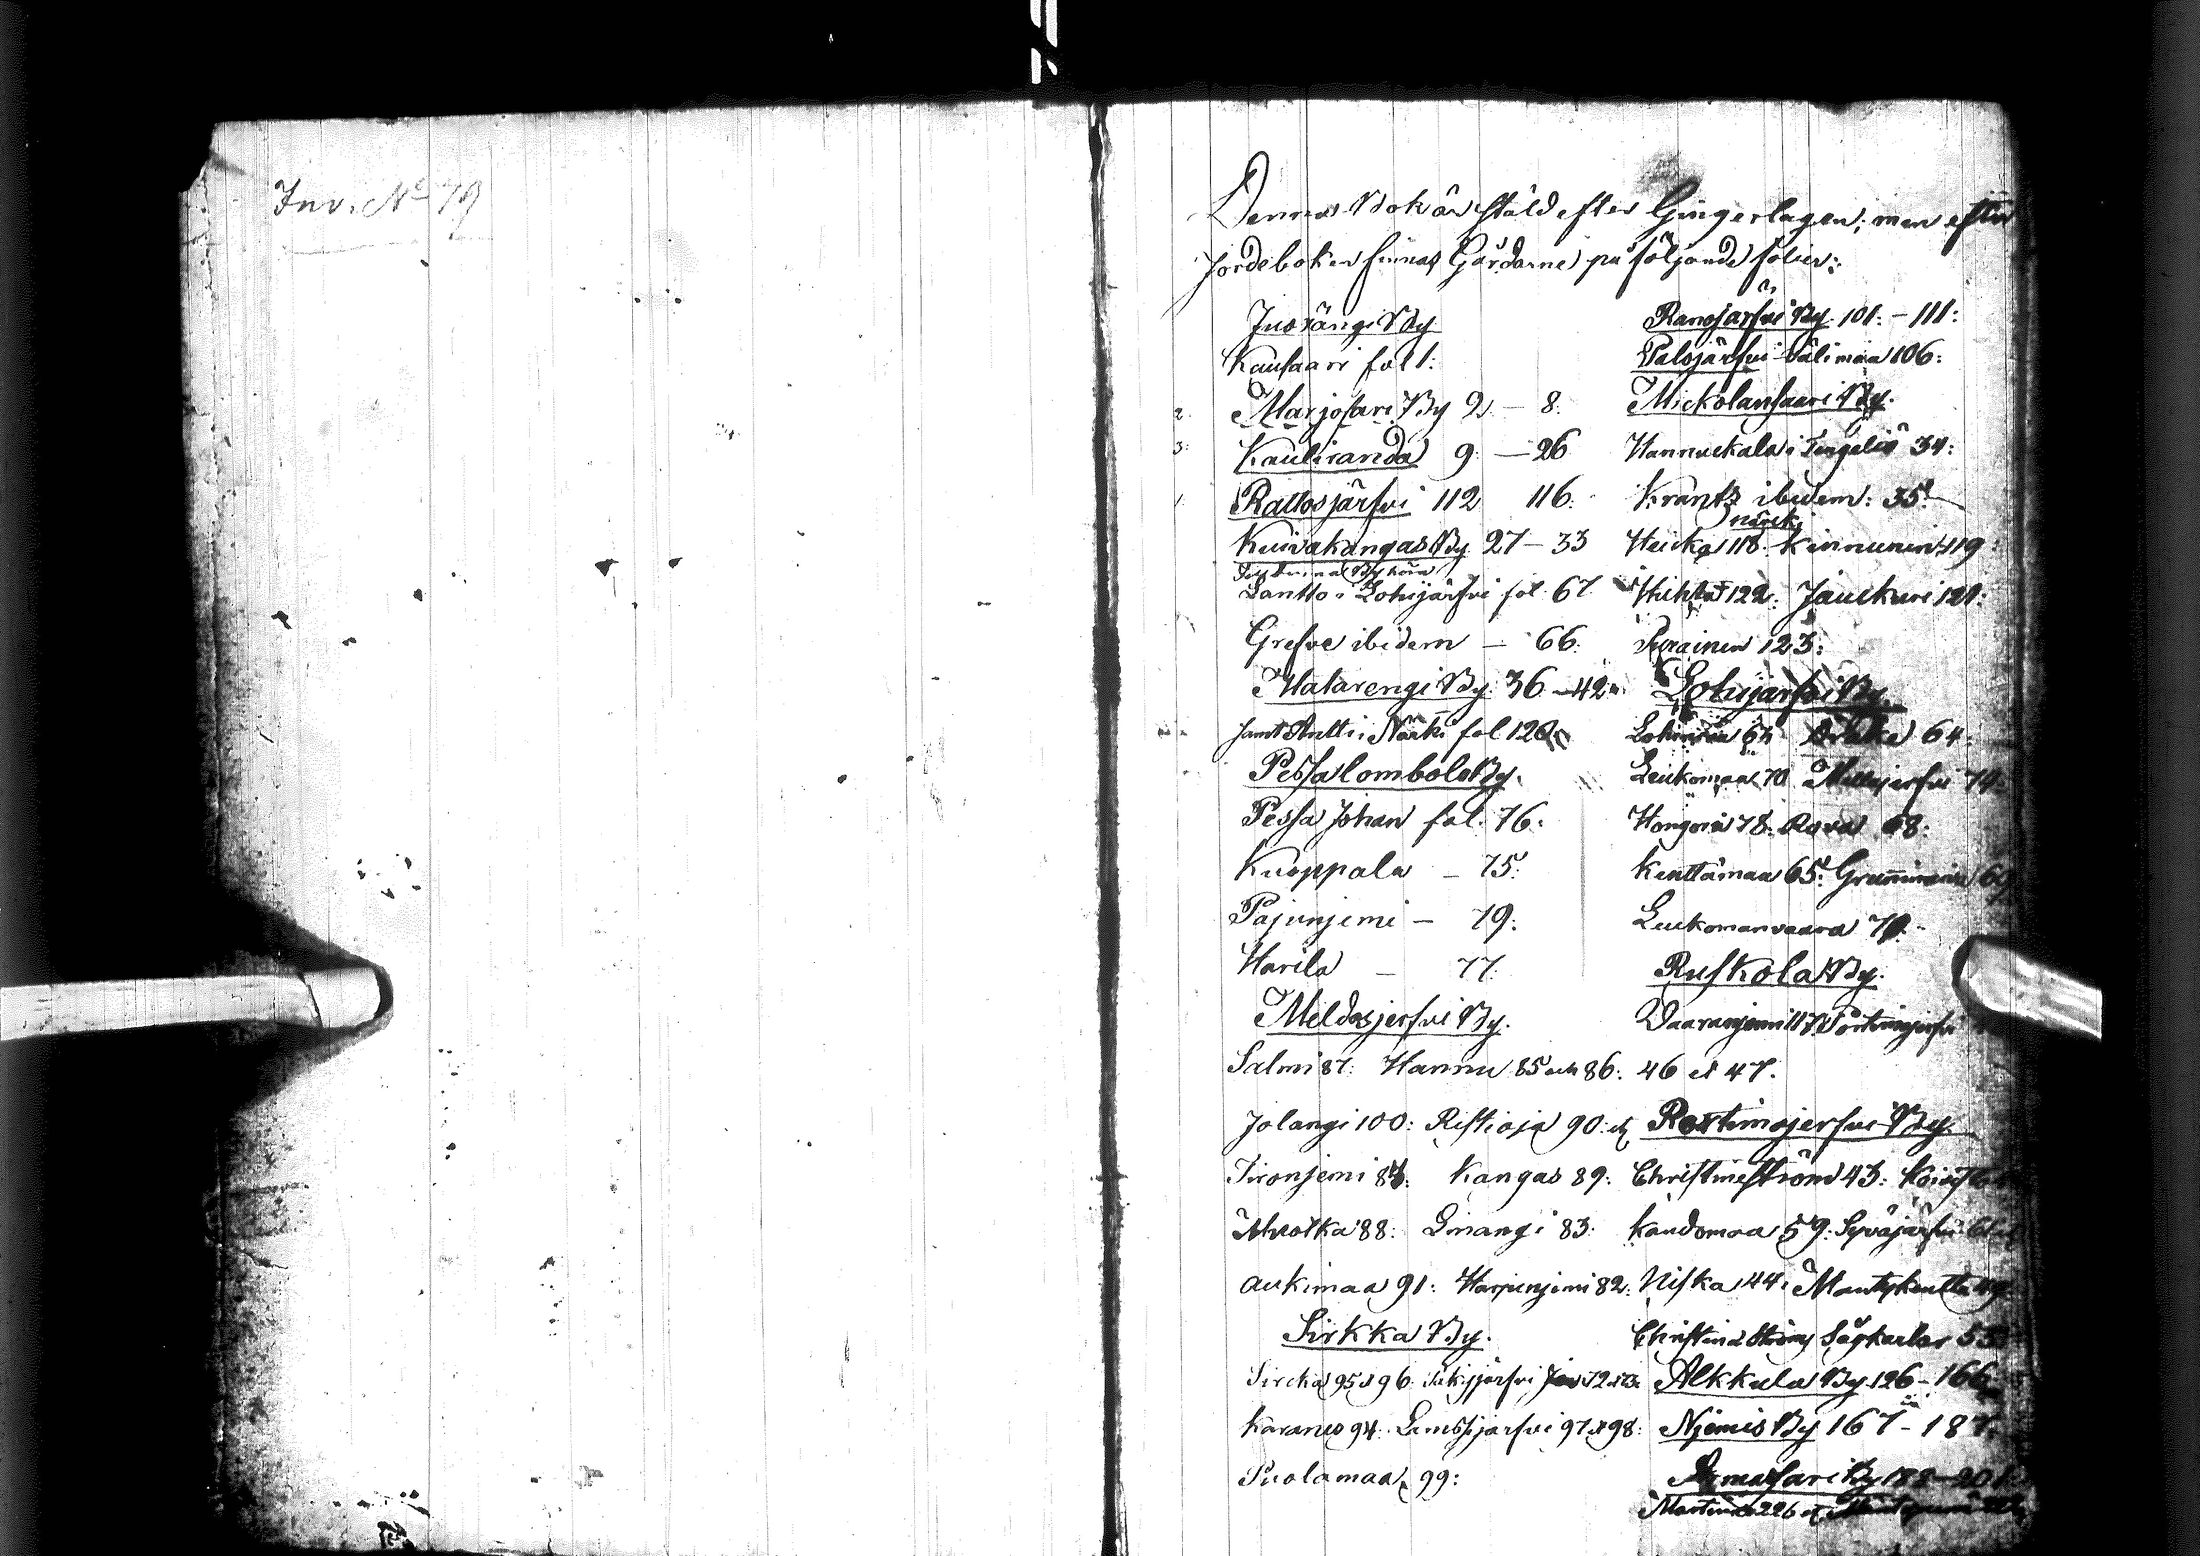 Inv. No 79
Denna Bok är stäld efter Gingerlagen; men efter
Jordeboken finnas Gårdarne på följande folier:
Juorängi By
Kausaari fol 1:
2. Marjosari By 2 — 8.
3: Kauliranda 9 — 26
1. Rattosjärfvi 112 116.
Kuivakangas By 27 — 33
Lantto i Lohijärfvi fol. 67
Grefve ibidem — 66:
Matarengi By 36 — 42
samt Antti i Närki fol 120
Pessalombolo By.
Pessa Johan fol. 76:
Kuoppala — 75:
Pajunjemi — 79:
Harila — 77:
Meldosjerfvi By.
Salmi 87: Hannu 85 och 86:
Jolangi 100: Ristioja 90: et
Tironjemi 84: Kangas 89:
Ahvolka 88: Linangi 83:
aukimaa 91: Harjunjemi 82:
Sirkka By.
Sircka 95 & 96
Karanes 94: Lambsijarfvi 97 et 98:
Puolamaa 99:
Ranojärfvi By 101: — 111:
Palojärfvi Välimaa 106:
Mickolansaari By.
Hannuckala i Tengeliö 34:
Krantz ibidem: 35:
närcki
Heicka 118: Kinnunen 119:
Huhta 122: Jauckuri 121:
Purainen 123:
Lohijärfvi By.
Drake 64:
Leukomaa 70
Hongoja 78: Rova 68:
Kenttämaa 65:
Leukomanvaara 79:
Ruskola By.
Vaaranjemi 117:
46 et 47.
Rostimojerfvi By.
Christineström 43:
Kandomaa 59: Syväjärfvi
Niska 44: Mantykentta 49
Christineströms Sågkarlar 53
Alkkula By 126 — 166
Njemis By 167 — 187
Armasari By 188 — 201
Martin 226 et